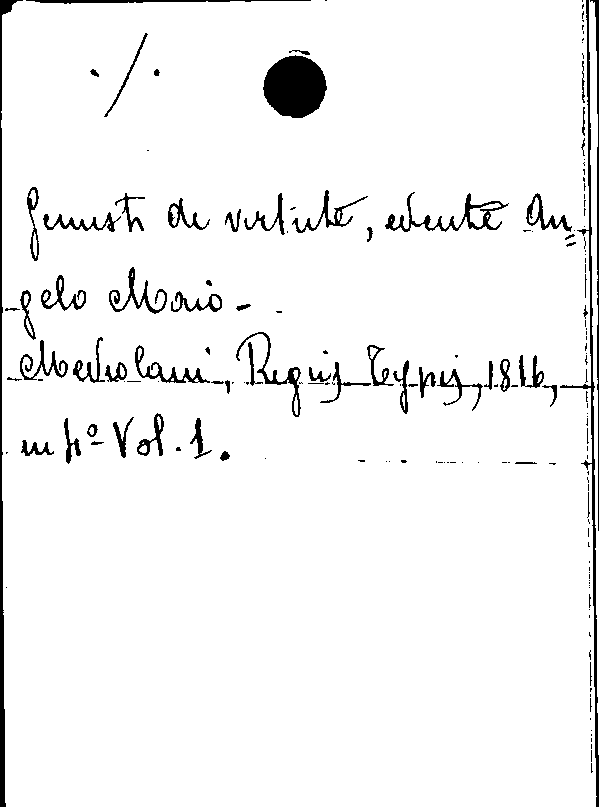 ./.
Gemisti de virtute, edente An=
gelo Maio -
Mediolani, Regiis Typis, 1816,
in 4º Vol. 1.